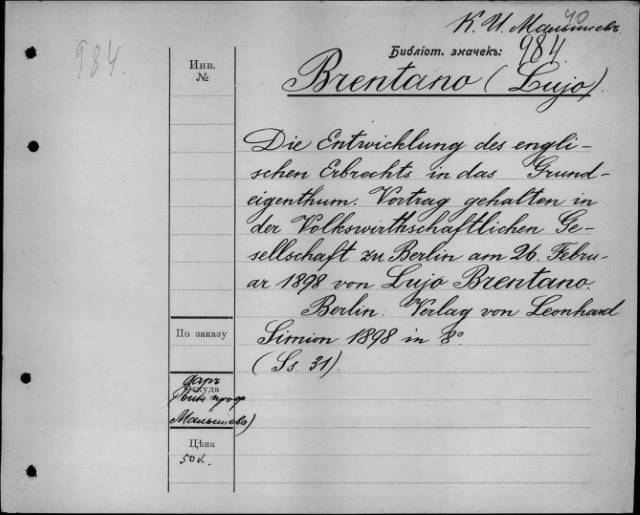 К. И. Малышевъ
40
984.
Библіот. значекъ:
984
Инв.
№
Brentano (Lujo).
Die Entwicklung des engli-
schen Erbrechts in das Grund-
eigenthum. Vortrag gehalten in
der Volkswirthschaftlichen Ge-
sellschaft zu Berlin am 26. Febru-
ar 1898 von Lujo Brentano.
Berlin. Verlag von Leonhard
Simion 1898 in 8°
(Ss. 31)
По заказу
даръ
Откуда
проф
Малышева)
Цѣна
50 к.